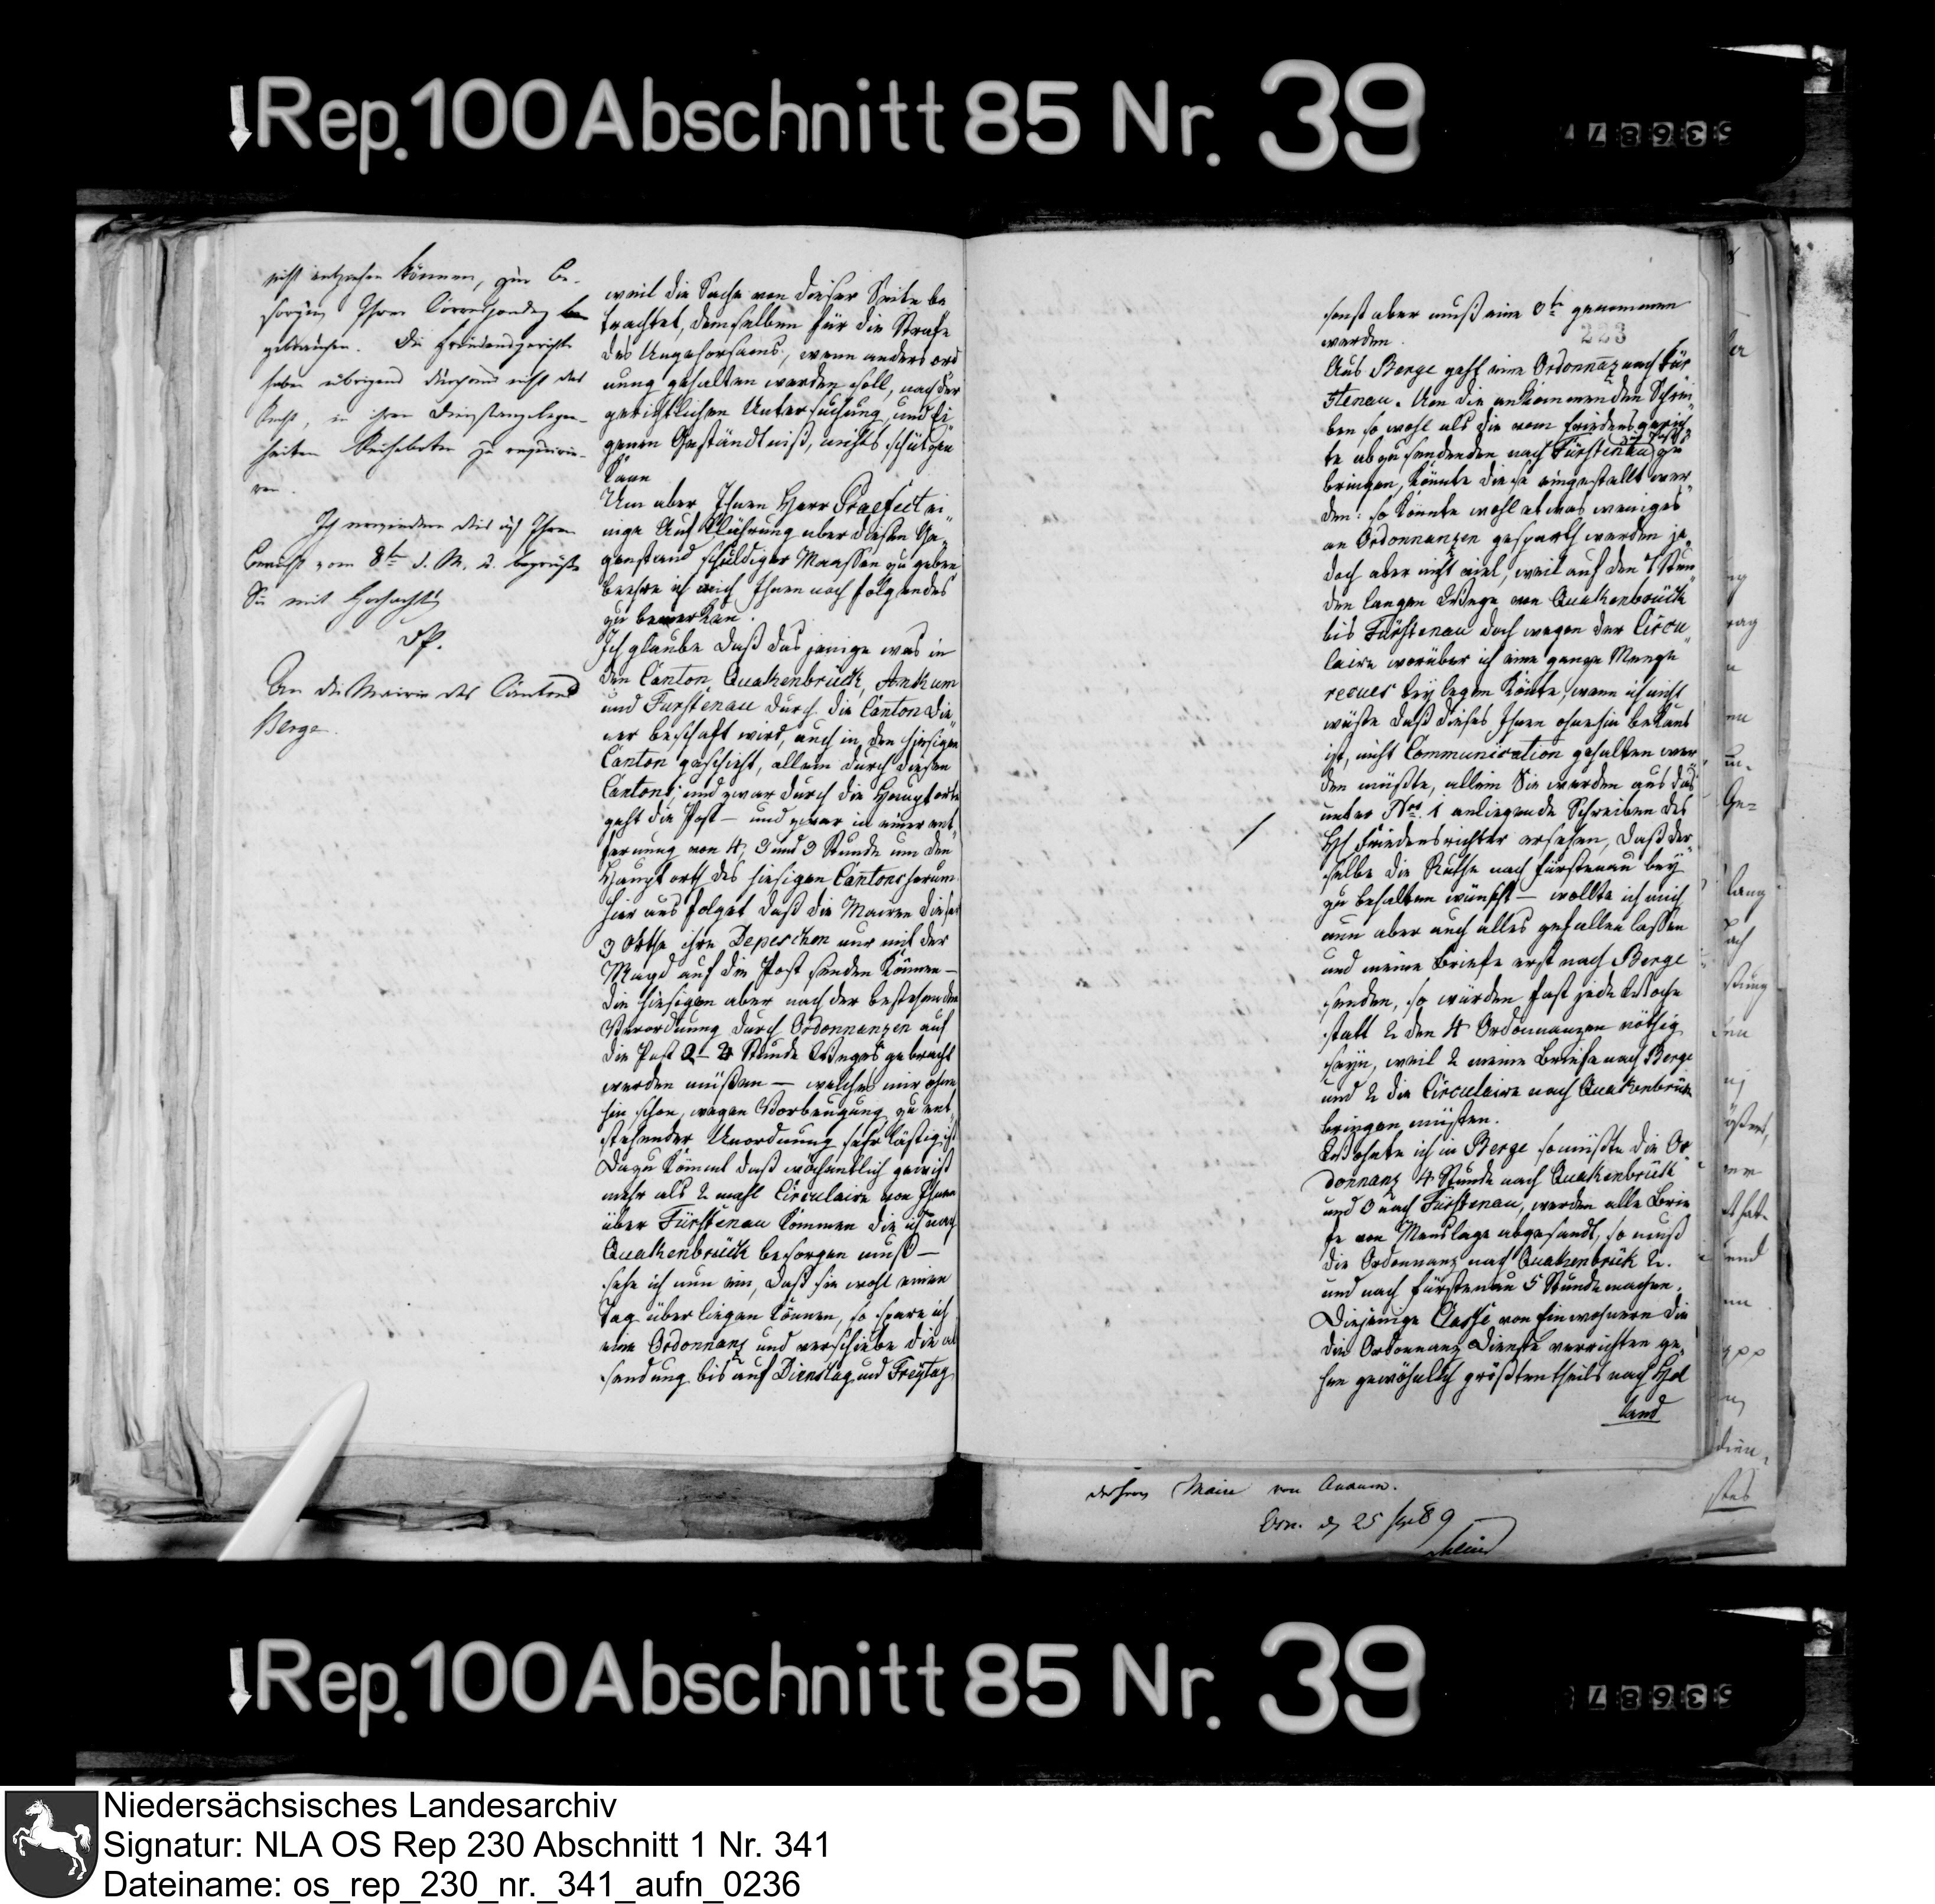 Rep. 100 Abschnitt 85 Nr. 39
nicht entziehen können, zur Be-
sorgung Ihrer Correspondenz
gebrauchen. Die Friedensgerichte
haben übrigens durchaus nicht das
Recht, in ihren Dienstangelegen-
heiten Reiheboten zu requirie-
ren.
Ich erwiedere dies auf Ihren
Bericht vom 8ten d. M. u. begrüße
Sie mit Hochachtg
An die Mairie des Cantons
Berge.
weil die Sache von dieser Seite be
trachtet, demselben für die Strafe
des Ungehorsams, wenn anders ord
nung gehalten werden soll, nach der
gerichtlichen Untersuchung und ei
genen Geständtniß, nichts schützen
kann
Um aber Ihnen Herr Praefect ei„
nige Aufklährung über diesen Ge„
genstand schuldiger Maassen zu geben
beehre ich mich Ihnen noch folgendes
zu bemerken.
Ich glaube daß das jenige was in
den Canton Quakenbrück, Ankum
und Furstenau durch die Canton die„
ner beschaft wird, auch in den hiesigen
Canton geschieht, allein durch diesen
Cantons; und zwar durch die Hauptorte
geht die Post – und zwar in einer ent„
fernung von 4, 3 und 3 Stunde um den
Hauptorth des hiesigen Cantons herum
hier aus folget daß die Mairen dieser
3 Orthe ihre Depeschen nur mit der
Magd auf die Post senden können –
die hiesigen aber nach der bestehenden
Verordnung durch Ordonnanzen auf
die Post 2 – 4 Stunde Weges gebracht
werden müßen – welches mir ohne
hin schon, wegen Vorbeugung zu ent„
stehender Unordnung sehr lästig ist
Dazu kömmt daß wöchentlich gewiß
mehr als 2 mahl Circulaire von Ihnen
über Fürstenau kommen die ich nach
Quakenbrück besorgen muß –
sehe ich nun ein, daß sie wohl einen
Tag über liegen können, so spare ich
eine Ordonnanz und verschiebe die ab
sendung bis auf Dienstag und Freytag
sonst aber muß eine 3te genommen
werden.
223
Aus Berge geht eine Ordonnanz nach Für
stenau. Um die ankommenden Schrei„
ben so wohl als die vom Friedensgerich„
te abzusendenden nach Fürstenau zu
bringen, könnte diese eingestellt wer„
den: so könnte wohl etwas weniges
an Ordonnanzen gesparth werden je„
doch aber nicht viel, weil auf den 7 Stun„
den langen Wege von Quakenbrück
bis Fürstenau doch wegen der Circu„
laire worüber ich eine ganze Menge
recues beylegen könte, wann ich nicht
wüßte daß dieses Ihnen ohnehin bekant
ist, nicht Communication gehalten wer„
den müßte, allein Sie werden aus das
unter Nro. 1 anliegende Schreiben des
H Friedensrichter ersehen, daß der„
selbe die Reihe nach Fürstenau bey
zu behalten wünscht – wollte ich mich
nun aber auch alles gefallen lassen
und meine Briefe erst nach Berge
senden, so würden fast jede Woche
statt 2 den 4 Ordonnanzen nöthig
seyn, weil 2 meine Briefe nach Berge
und 2 die Circulaire nach Quakenbrück
bringen müßten.
Wohnte ich in Berge so müßte die Or„
donnanz 4 Stunde nach Quakenbrück
und 3 nach Fürstenau, werden alle Brie
fe von Menslage abgesandt, so muß
die Ordonnanz nach Quakenbrück 2.
und nach Fürstenau 5 Stunde machen.
Diejenige Classe von Einwohnern die
die Ordonnanz Dienste verrichten ge„
hen gewöhnlich größtentheils nach Hol
land
Maire von Ankum.
Osn. d 25 Sept 8 9
Rep. 100 Abschnitt 85 Nr. 39
Niedersächsisches Landesarchiv
Signatur: NLA OS Rep 230 Abschnitt 1 Nr. 341
Dateiname: os_rep_230_nr._341_aufn_0236